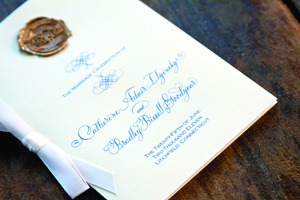 The Marriage Celebration of
Catherine Adair
and
Bradley Bissell Goodyear
The Twenty-Fifth of June
Two Thousand Eleven
Litchfield, Connecticut